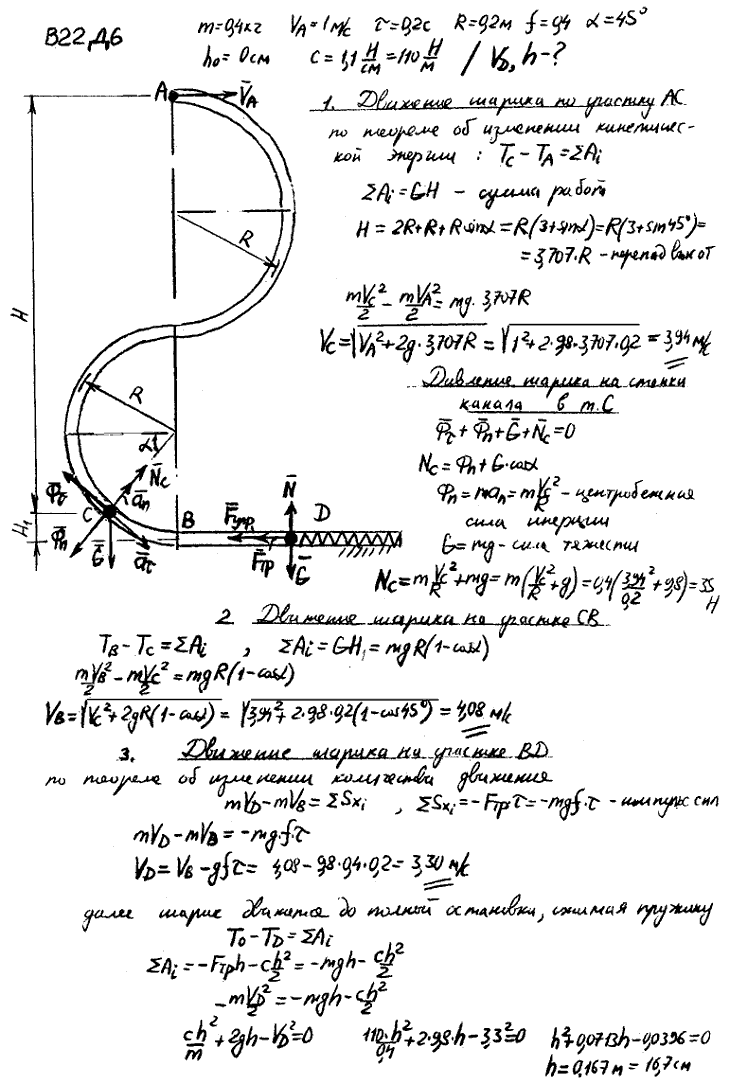 В22 Д6
m=0,4кг V_A=1 м/с τ=0,2с R=0,2м f=0,4 α=45°
h₀=0см c=1,1 Н/см=110 Н/м / V_D, h-?
A V̄_A
1. Движение шарика по участку AC
по теореме об изменении кинетичес-
кой энергии : T_C - T_A = ΣA_i
ΣA_i = GH - сумма работ
H = 2R+R+R sinα = R(3+sinα) = R(3+sin45°)=
= 3,707·R - перепад высот
R
H
mV_C²/2 - mV_A²/2 = mg·3,707R
V_C = √(V_A²+2g·3,707R) = √(1²+2·9,8·3,707·0,2) = 3,94 м/с
Давление шарика на стенки
канала в т.С
Φ̄_τ + Φ̄_n + Ḡ + N̄_C = 0
N_C = Φ_n + G·cosα
Φ_n = ma_n = mV_C²/R - центробежная
сила инерции
G = mg - сила тяжести
N_C = mV_C²/R + mg = m(V_C²/R + g) = 0,4(3,94²/0,2 + 9,8) = 35 Н
R
α
Φ̄_τ N̄_C ā_n
C
Φ̄_n Ḡ ā_τ
H₁
B F̄_упр N̄ D
F̄_тр Ḡ
2 Движение шарика на участке CB
T_B - T_C = ΣA_i , ΣA_i = GH₁ = mgR(1-cosα)
mV_B²/2 - mV_C²/2 = mgR(1-cosα)
V_B = √(V_C²+2gR(1-cosα)) = √(3,94²+2·9,8·0,2(1-cos45°)) = 4,08 м/с
3. Движение шарика на участке BD
по теореме об изменении количества движения
mV_D - mV_B = ΣSx_i , ΣSx_i = -F_тр·τ = -mgf·τ - импульс сил
mV_D - mV_B = -mg·f·τ
V_D = V_B - gfτ = 4,08 - 9,8·0,4·0,2 = 3,30 м/с
далее шарик движется до полной остановки, сжимая пружину
T₀ - T_D = ΣA_i
ΣA_i = -F_тр h - ch²/2 = -mgh - ch²/2
-mV_D²/2 = -mgh - ch²/2
ch²/m + 2gh - V_D² = 0 110·h²/0,4 + 2·9,8·h - 3,3² = 0 h² + 0,0713h - 0,0396 = 0
h = 0,167м = 16,7см